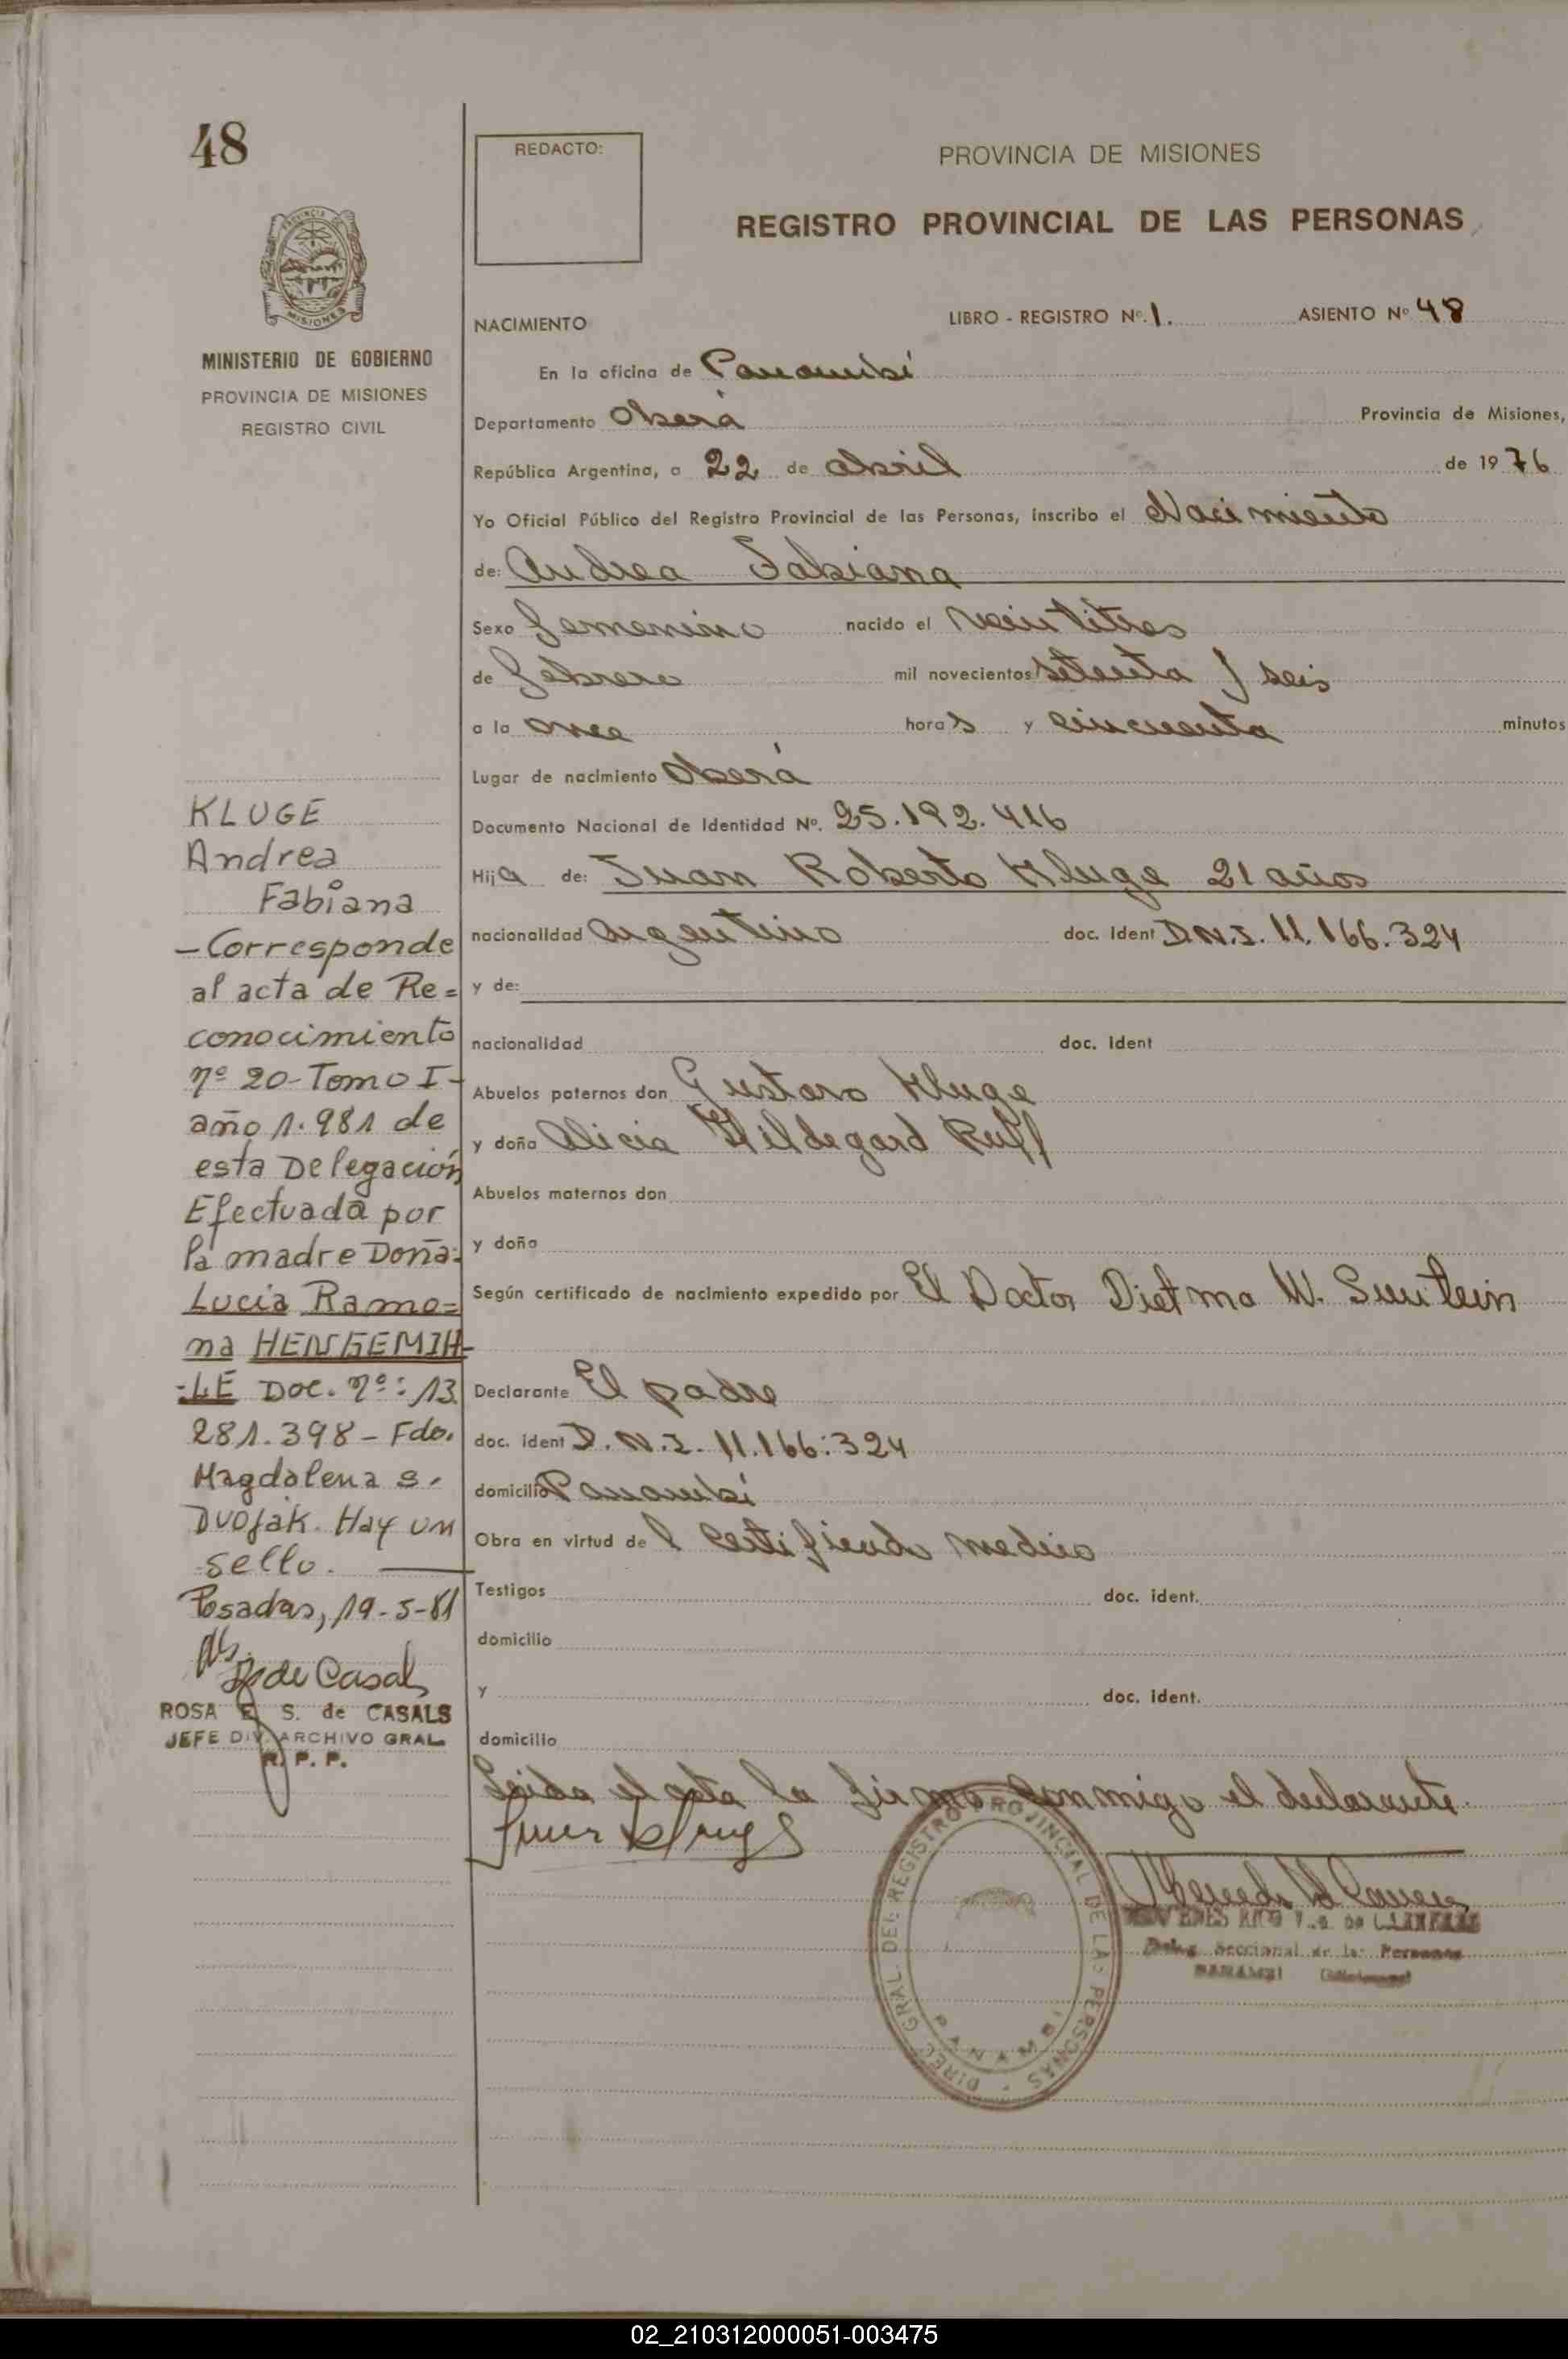 48
REDACTO:
PROVINCIA DE MISIONES
REGISTRO PROVINCIAL DE LAS PERSONAS
MISIONES
MINISTERIO DE GOBIERNO
PROVINCIA DE MISIONES
REGISTRO CIVIL
NACIMIENTO
LIBRO - REGISTRO Nº. 1. ASIENTO Nº 48
En la oficina de Panambí
Departamento Oberá Provincia de Misiones,
República Argentina, a 22 de abril de 1976
Yo Oficial Público del Registro Provincial de las Personas, inscribo el Nacimiento
de: Andrea Fabiana
Sexo femenino nacido el veintitres
de febrero mil novecientos setenta y seis
a la once horas y cincuenta minutos
Lugar de nacimiento Oberá
Documento Nacional de Identidad Nº. 25.192.416
Hija de: Juan Roberto Kluge 21 años
nacionalidad argentino doc. Ident D.N.I. 11.166.324
y de:
nacionalidad doc. Ident
Abuelos paternos don Gustavo Kluge
y doña Alicia Hildegard Ruff
Abuelos maternos don
y doña
Según certificado de nacimiento expedido por El Doctor Dietma W.
Declarante El padre
doc. ident D.N.I. 11.166.324
domicilio Panambí
Obra en virtud del certificado medico
Testigos doc. ident.
domicilio
y doc. ident.
domicilio
Leida el acta la firma conmigo el declarante.
Juan Kluge
DIREC. GRAL. DEL REGISTRO PROVINCIAL DE LAS PERSONAS
PANAMBI
Seccional de las Personas
PANAMBI (Misiones)
KLUGE
Andrea
Fabiana
-Corresponde
al acta de Re=
conocimiento
nº 20-Tomo I-
año 1.981 de
esta Delegación
Efectuada por
la madre Doña:
Lucia Ramo=
na HENGEMIH-
-LE Doc. nº: 13.
281.398 - Fdo.
Magdalena S.
Dvojak. Hay un
sello.
Posadas, 19-5-81
S. de Casals
ROSA E. S. de CASALS
JEFE DIV. ARCHIVO GRAL.
R. P. P.
02_210312000051-003475